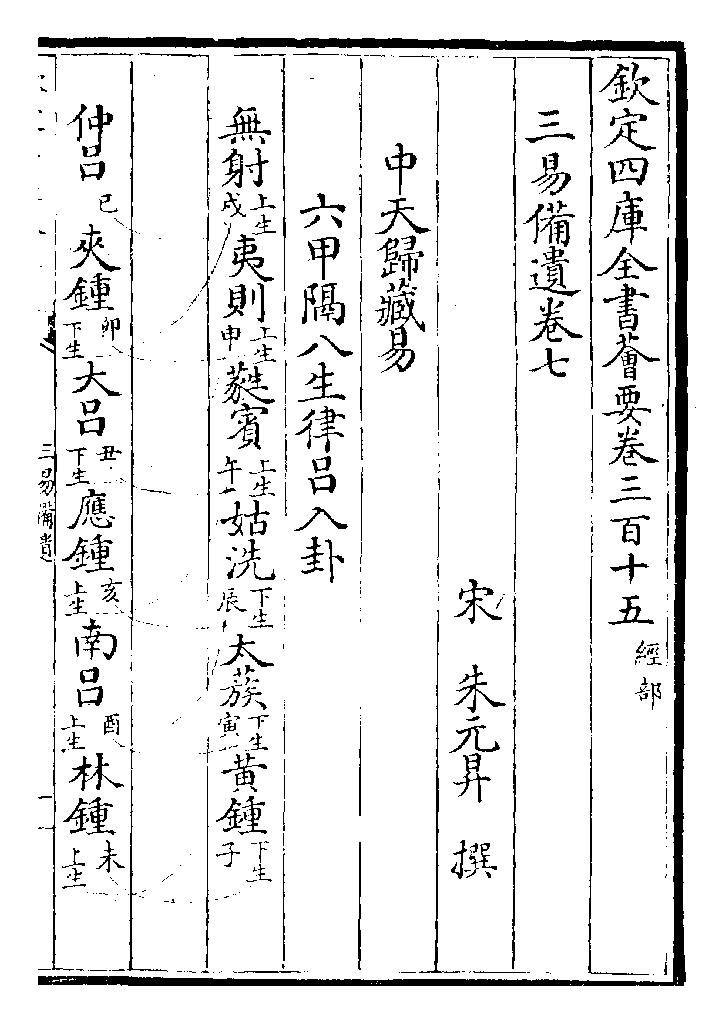 欽定四庫全書薈要卷三百十五 經部
三易備遺卷七
宋 朱元昇 撰
中天歸藏易
六甲隔八生律呂入卦
無射上生戌夷則上生申蕤賓上生午姑洗下生辰太蔟下生寅黃鍾下生子
仲呂巳夾鍾卯下生大呂丑下生應鍾亥上生南呂酉上生林鍾未上生
三易備遺